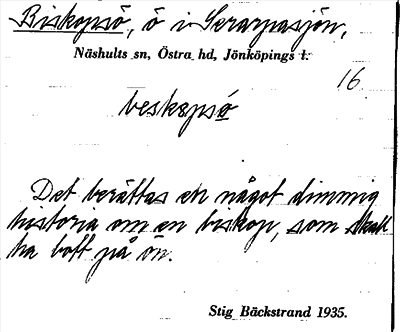 Biskopsö, ö i Serarpasjön,
Näshults sn, Östra hd, Jönköpings l.
16
beskopsö
Det berättas en något dimmig
historia om en biskop, som skall
ha bott på ön.
Stig Bäckstrand 1935.